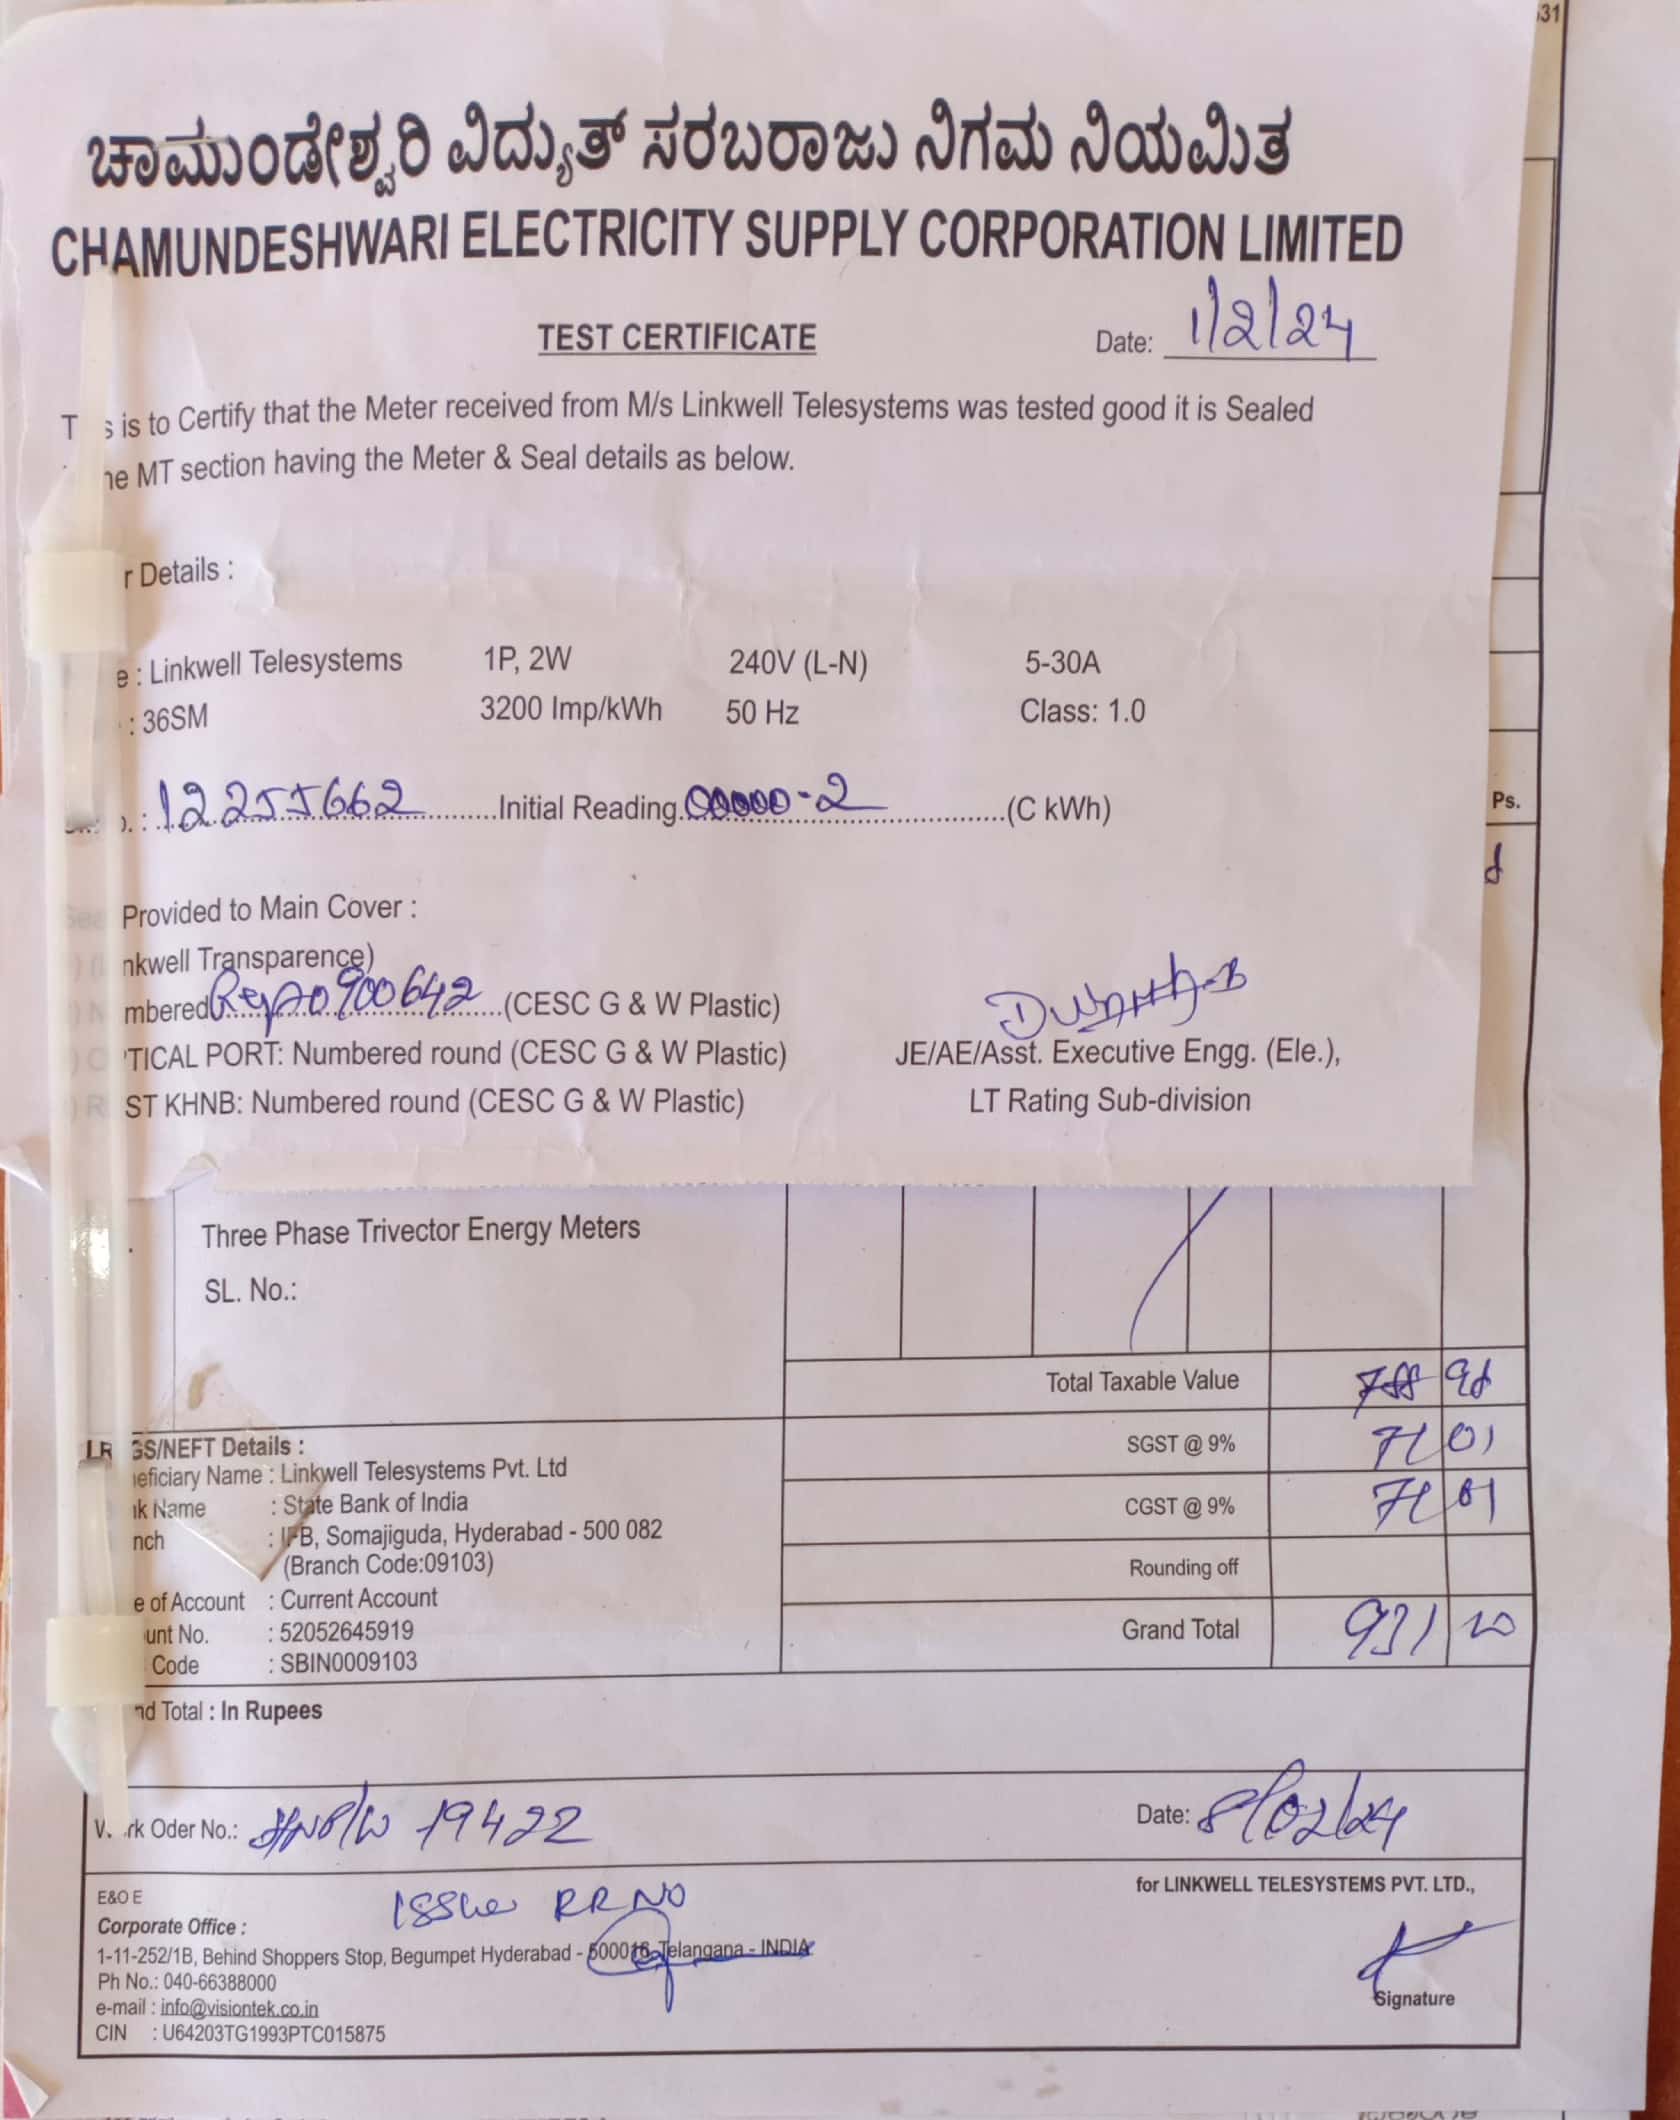 ಚಾಮುಂಡೇಶ್ವರಿ ವಿದ್ಯುತ್ ಸರಬರಾಜು ನಿಗಮ ನಿಯಮಿತ
CHAMUNDESHWARI ELECTRICITY SUPPLY CORPORATION LIMITED
TEST CERTIFICATE Date: 1/2/24
is to Certify that the Meter received from M/s Linkwell Telesystems was tested good it is Sealed
MT section having the Meter & Seal details as below.
Details :
: Linkwell Telesystems 1P, 2W 240V (L-N) 5-30A
: 36SM 3200 Imp/kWh 50 Hz Class: 1.0
: 12255662 Initial Reading 00000-2 (C kWh)
Ps.
Provided to Main Cover :
nkwell Transparence)
mbered 0900642 (CESC G & W Plastic)
TICAL PORT: Numbered round (CESC G & W Plastic) JE/AE/Asst. Executive Engg. (Ele.),
ST KHNB: Numbered round (CESC G & W Plastic) LT Rating Sub-division
Three Phase Trivector Energy Meters
SL. No.:
Total Taxable Value 788 98
SGST @ 9% 71 01
CGST @ 9% 71 01
Rounding off
Grand Total 931 20
GS/NEFT Details :
eficiary Name : Linkwell Telesystems Pvt. Ltd
Name : State Bank of India
nch : IFB, Somajiguda, Hyderabad - 500 082
(Branch Code:09103)
e of Account : Current Account
unt No. : 52052645919
Code : SBIN0009103
nd Total : In Rupees
rk Oder No.: 19422 Date: 8/02/24
E&O E
for LINKWELL TELESYSTEMS PVT. LTD.,
Issue RR NO
Corporate Office :
1-11-252/1B, Behind Shoppers Stop, Begumpet Hyderabad - 500016, Telangana - INDIA
Ph No.: 040-66388000
e-mail : info@visiontek.co.in
Signature
CIN : U64203TG1993PTC015875